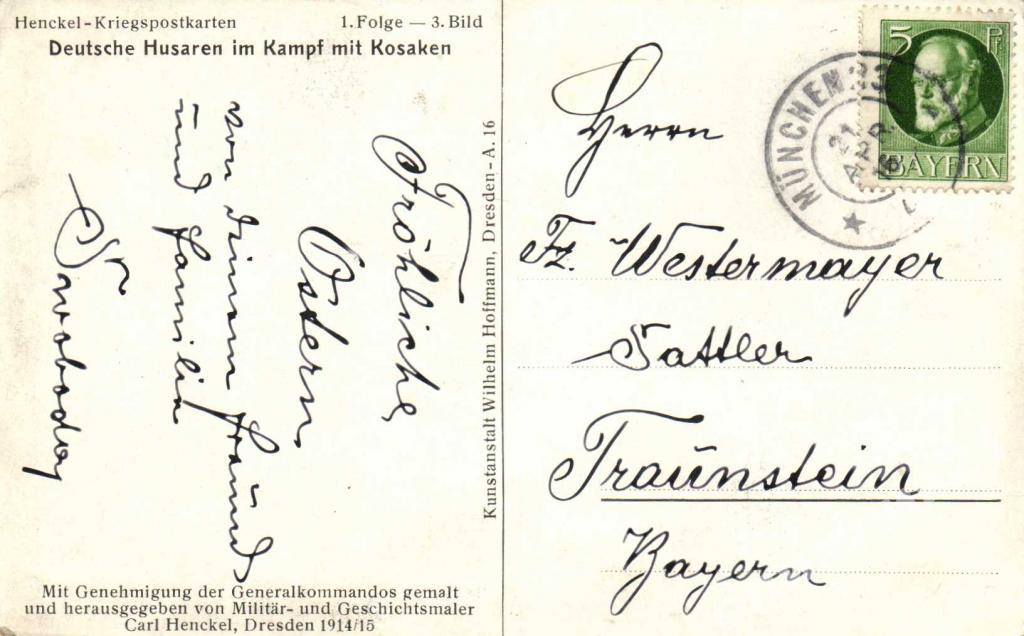 Henckel-Kriegspostkarten 1. Folge — 3. Bild
Deutsche Husaren im Kampf mit Kosaken
Fröhliche
Ostern
von deinem Freund
und Familie
Swoboda
Mit Genehmigung der Generalkommandos gemalt
und herausgegeben von Militär- und Geschichtsmaler
Carl Henckel, Dresden 1914/15
Kunstanstalt Wilhelm Hoffmann, Dresden-A. 16
5 Pf
BAYERN
MÜNCHEN 23
Herrn
Fz. Westermayer
Sattler
Traunstein
Bayern